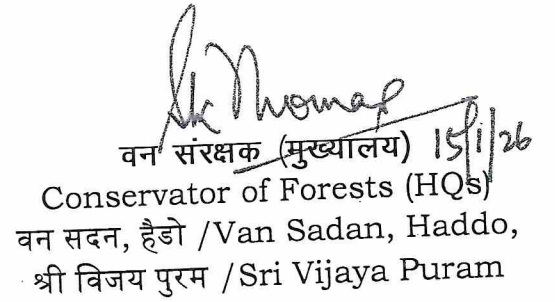 वन संरक्षक (मुख्यालय) 15/1/26
Conservator of Forests (HQs)
वन सदन, हैडो /Van Sadan, Haddo,
श्री विजय पुरम /Sri Vijaya Puram